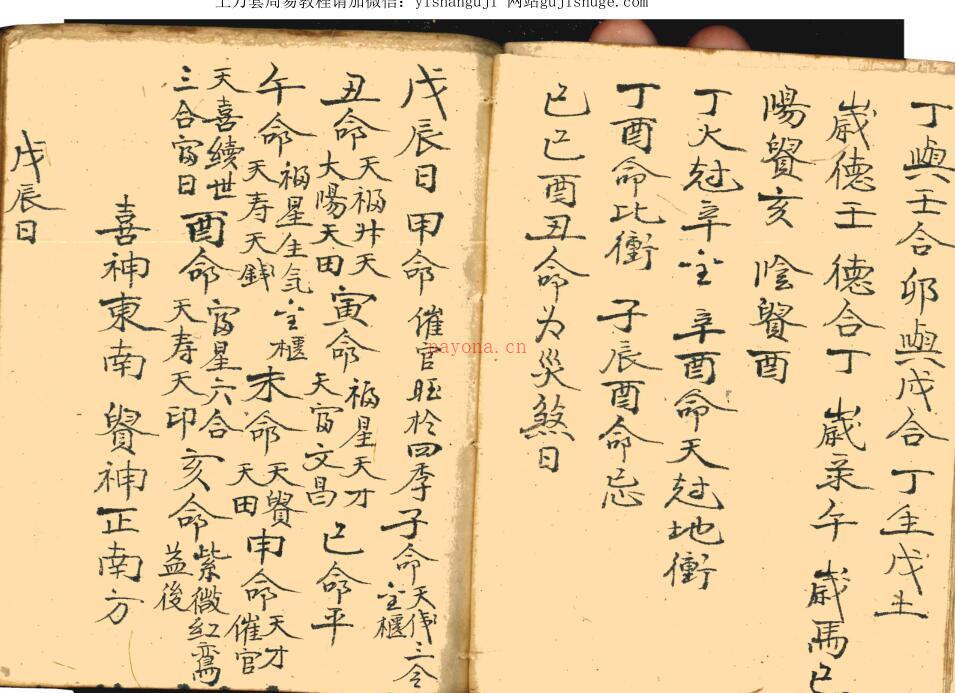 上万套周易教程请加微信：yishanguji 网站gujishuge.com
丁與壬合卯與戌合丁壬戌土
歲德壬 德合丁 歲彔午 歲馬巳
陽貿亥 陰貿酉
丁火尅辛金 辛酉命天尅地衝
丁酉命比衝 子辰酉命忌
巳巳酉丑命为災煞日
nayona.cn
戊辰日 甲命 催官旺於四季 子命 三合 金櫃
丑命 天福升天 太陽天田 寅命 福星天才 天富文昌 巳命平
午命 福星生气金櫃 天寿天錢 未命 天貿 天田 申命 天才 催官
天喜續世 三合富日 酉命 富星六合 天寿天印 亥命 紫微红鸾 益後
喜神東南 貿神正南方
戊辰日